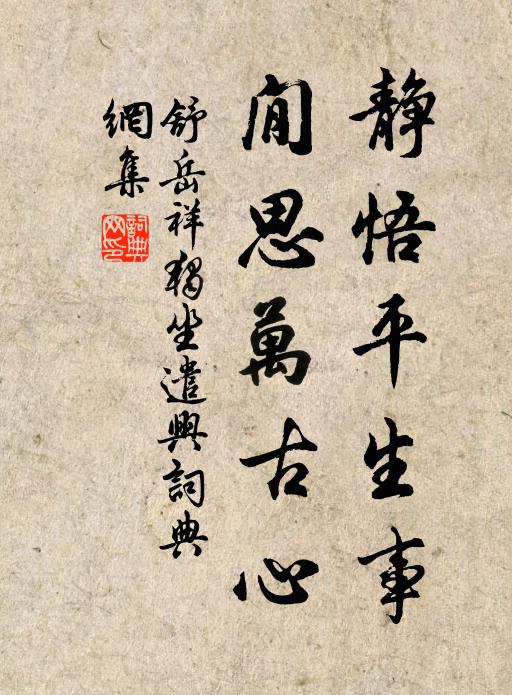 静悟平生事
閒思萬古心
舒岳祥獨坐遣興詞典
網集
詞典
网印